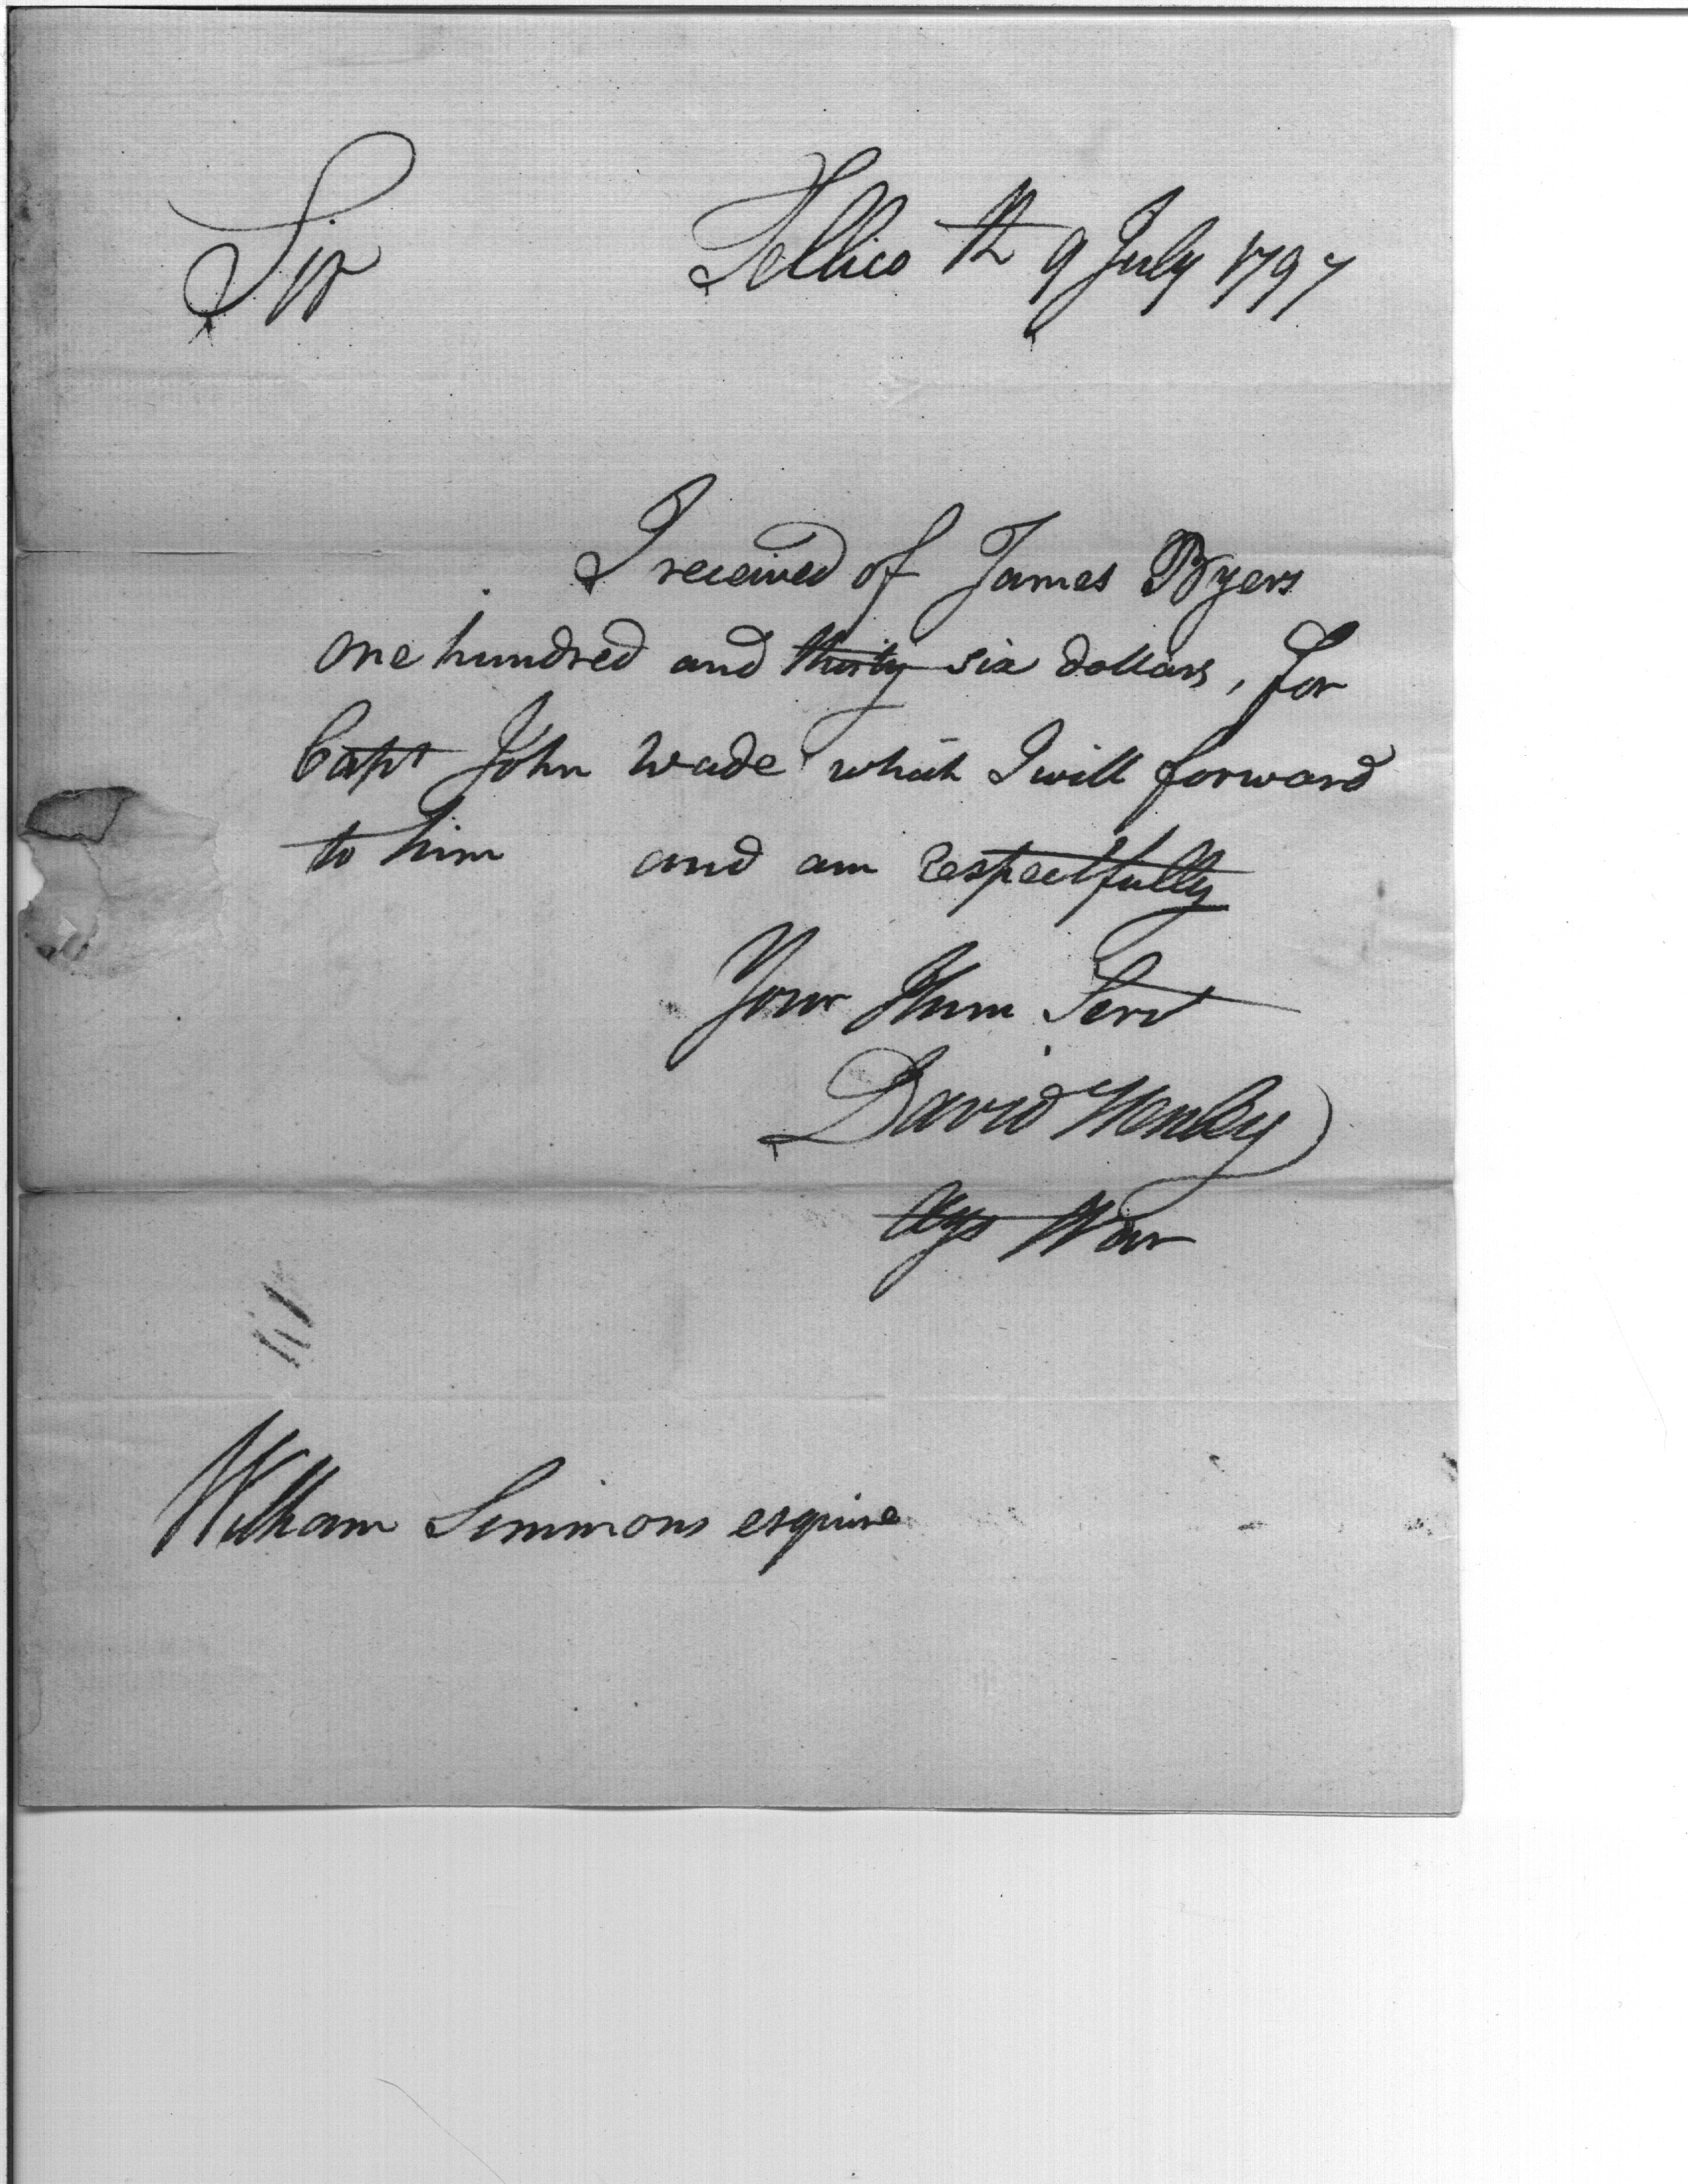 Sir Tellico th 9 July 1797
I received of James Byers
one hundred and thirty six dollars, for
Capt John Wade which I will forward
to him and am respectfully
Your Hum Servt
David Henley
Agt War
William Simmons esquire